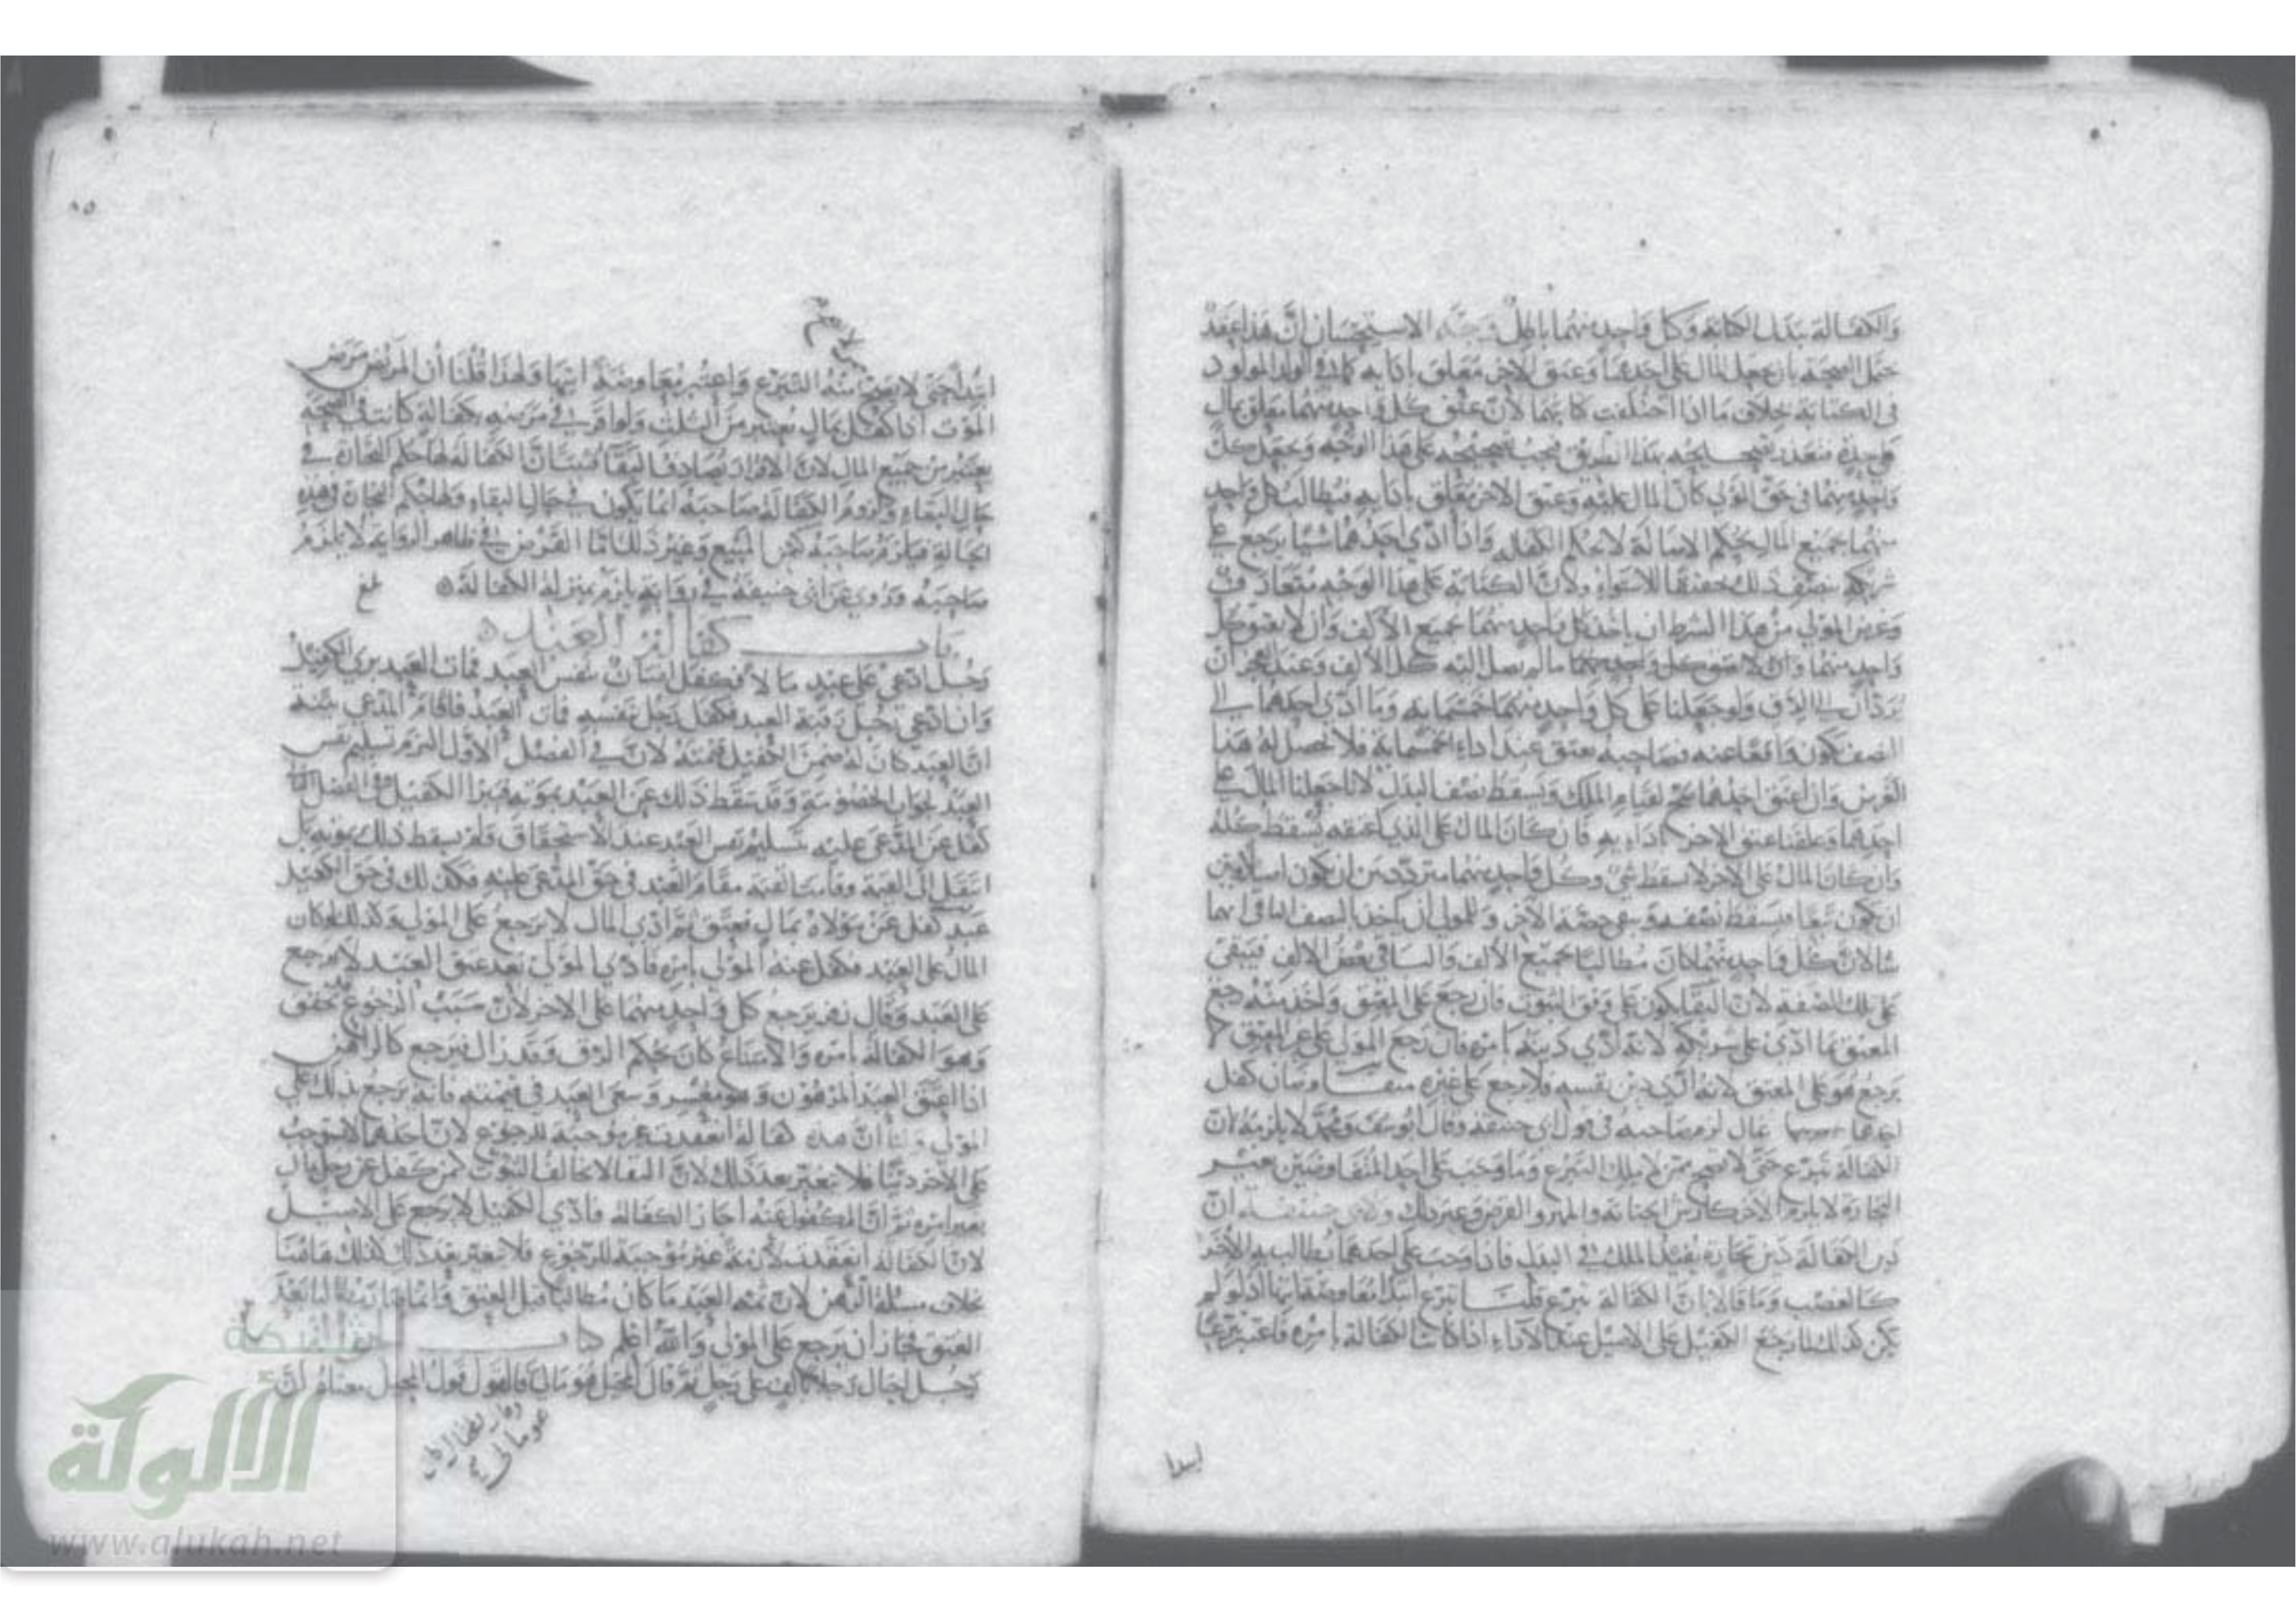 والكفالة ببدل الكتابة وكل واحد منهما باطل وجه الاستحسان ان هذا عقد
حمل الصحة بان يجعل المال على احدهما وعتق الاخر معلق بادائه كما في الولد المولود
في الكتابة بخلاف ما اذا اختلفت كتابتهما لان عتق كل واحد منهما معلق بمال
على حدة فتعذر تصحيحه بهذا الطريق فيجب تصحيحه على هذا الوجه وجعل كل
واحد منهما في حق المولى كان المال عليه وعتق الاخر معلق بادائه فيطالب كل واحد
منهما بجميع المال بحكم الاصالة لا بحكم الكفالة واذا ادى احدهما شيئا يرجع على
شريكه بنصف ذلك تحقيقا للاستواء ولان الكتابة على هذا الوجه متعارف
وغرض المولى من هذا الشرط ان ياخذ كل واحد منهما بجميع الالف وان لا يعتق كل
واحد منهما وان لا يعتق كل واحد منهما ما لم يصل اليه كل الالف وعند العجز ان
يرد الى الرق ولو جعلنا على كل واحد منهما خمسمائة وما ادى احدهما الى
النصف يكون واقعا عنه وصاحبه يعتق عند اداء الخمسمائة فلا يحصل له هذا
الغرض وان اعتق احدهما صح لقيام الملك ويسقط نصف البدل لانا جعلنا المال على
احدهما وعلقنا عتق الاخر بادائه فان كان المال على الذي اعتقه يسقط كله
وان كان المال على الاخر لا يسقط شيء وكل واحد منهما متردد بين ان يكون اصلا وبين
ان يكون تبعا فيسقط نصفه وبقي حصة الاخر وللمولى ان ياخذ بالنصف الباقي ايهما
شا لان كل واحد منهما كان مطالبا بجميع الالف والباقي بعض الالف فيبقى
على تلك الصفة لان البقا يكون على وفق الثبوت فان رجع على المعتق واخذ منه رجع
المعتق بما ادى على شريكه لانه ادى دينه بامره فان رجع المولى على غير المعتق لا
يرجع هو على المعتق لانه ادى دين نفسه فلا يرجع على غيره متفاوضان كفل
احدهما بمال لزم صاحبه في قول ابي حنيفة وقال ابو يوسف ومحمد لا يلزمه ان
الكفالة تبرع حتى لا تصح ممن لا يملك التبرع وما وجب على احد المتفاوضين بغير
التجارة لا يلزم الاخر كارش الجناية والمهر والقرض وغير ذلك ولابي حنيفة ان
دين الكفالة دين تجارة يفيد الملك في البدل فاذا وجب على احدهما يطالب به الاخر
كالغصب وما قالا بان الكفالة تبرع قلنا تبرع ابتداء معاوضة بقاء اذ لو لم
يكن كذلك لما رجع الكفيل على الاصيل عند الاداء اذا كانت الكفالة بامره فاعتبر تبرعا
ابتدا
ابتدا حتى لا يصح منه التبرع واعتبر معاوضة انتهاء ولهذا قلنا ان المريض مرض
الموت اذا كفل بمال يعتبر من الثلث ولو اقر في مرضه بكفالة كانت في الصحة
يعتبر من جميع المال لان الاقرار يصادف البقاء فثبت ان الكفالة لها حكم التجارة في
حال البقاء ولزوم الكفالة صاحبه انما يكون في حال البقاء ولها حكم التجارة وهذه
الحالة فيلزم صاحبه كثمن المبيع وغير ذلك فاما القرض في ظاهر الرواية لا يلزم
صاحبه وروي عن ابي حنيفة في رواية يلزم بمنزلة الكفالة بلغ
باب كفالة العبد
رجل ادعى على عبد مالا فكفل انسان بنفس العبد فمات العبد برئ الكفيل
وان ادعى رجل رقبة العبد فكفل رجل بنفسه فمات العبد فاقام المدعي بينة
ان العبد كان له ضمن الكفيل قيمته لان في الفصل الاول التزم تسليم نفس
العبد لجواب الخصومة وقد سقط ذلك عن العبد بموته فيبرا الكفيل وفي الفصل الثاني
كفل عن المدعى عليه تسليم نفس العبد عند الاستحقاق ولم يسقط ذلك بموته بل
انتقل الى القيمة وقامت القيمة مقام العبد في حق المدعى عليه فكذلك في حق الكفيل
عبد كفل عن مولاه بمال فعتق ثم ادى المال لا يرجع على المولى وكذلك لو كان
المال على العبد فكفل عنه المولى بامره فادى المولى بعد عتق العبد لا يرجع
على العبد وقال زفر يرجع كل واحد منهما على الاخر لان سبب الرجوع تحقق
وهو الكفالة بامره والامتناع كان بحكم الرق وقد زال فيرجع كالراهن
اذا اعتق العبد المرهون وهو معسر وسعى العبد في قيمته فانه يرجع بذلك على
المولى ولنا ان هذه كفالة انعقدت غير موجبة للرجوع لان احدهما لا يستوجب
على الاخر دينا فلا يعتبر بعد ذلك لان البقا لا يخالف الثبوت كمن كفل عن رجل بمال
بغير امره ثم ان المكفول عنه اجاز الكفالة فادى الكفيل لا يرجع على الاصيل
لان الكفالة انعقدت لازمة غير موجبة للرجوع فلا تعتبر بعد ذلك كذلك هاهنا
بخلاف مسئلة الرهن لان ثمة العبد ما كان مطالبا قبل العتق وانما صار مطالبا بعد
العتق فجاز ان يرجع على المولى والله اعلم باب
رجل احال رجلا بالف على رجل ثم قال المحيل هو مالي فالقول قول المحيل معناه ان
شبكة
الألوكة
www.alukah.net